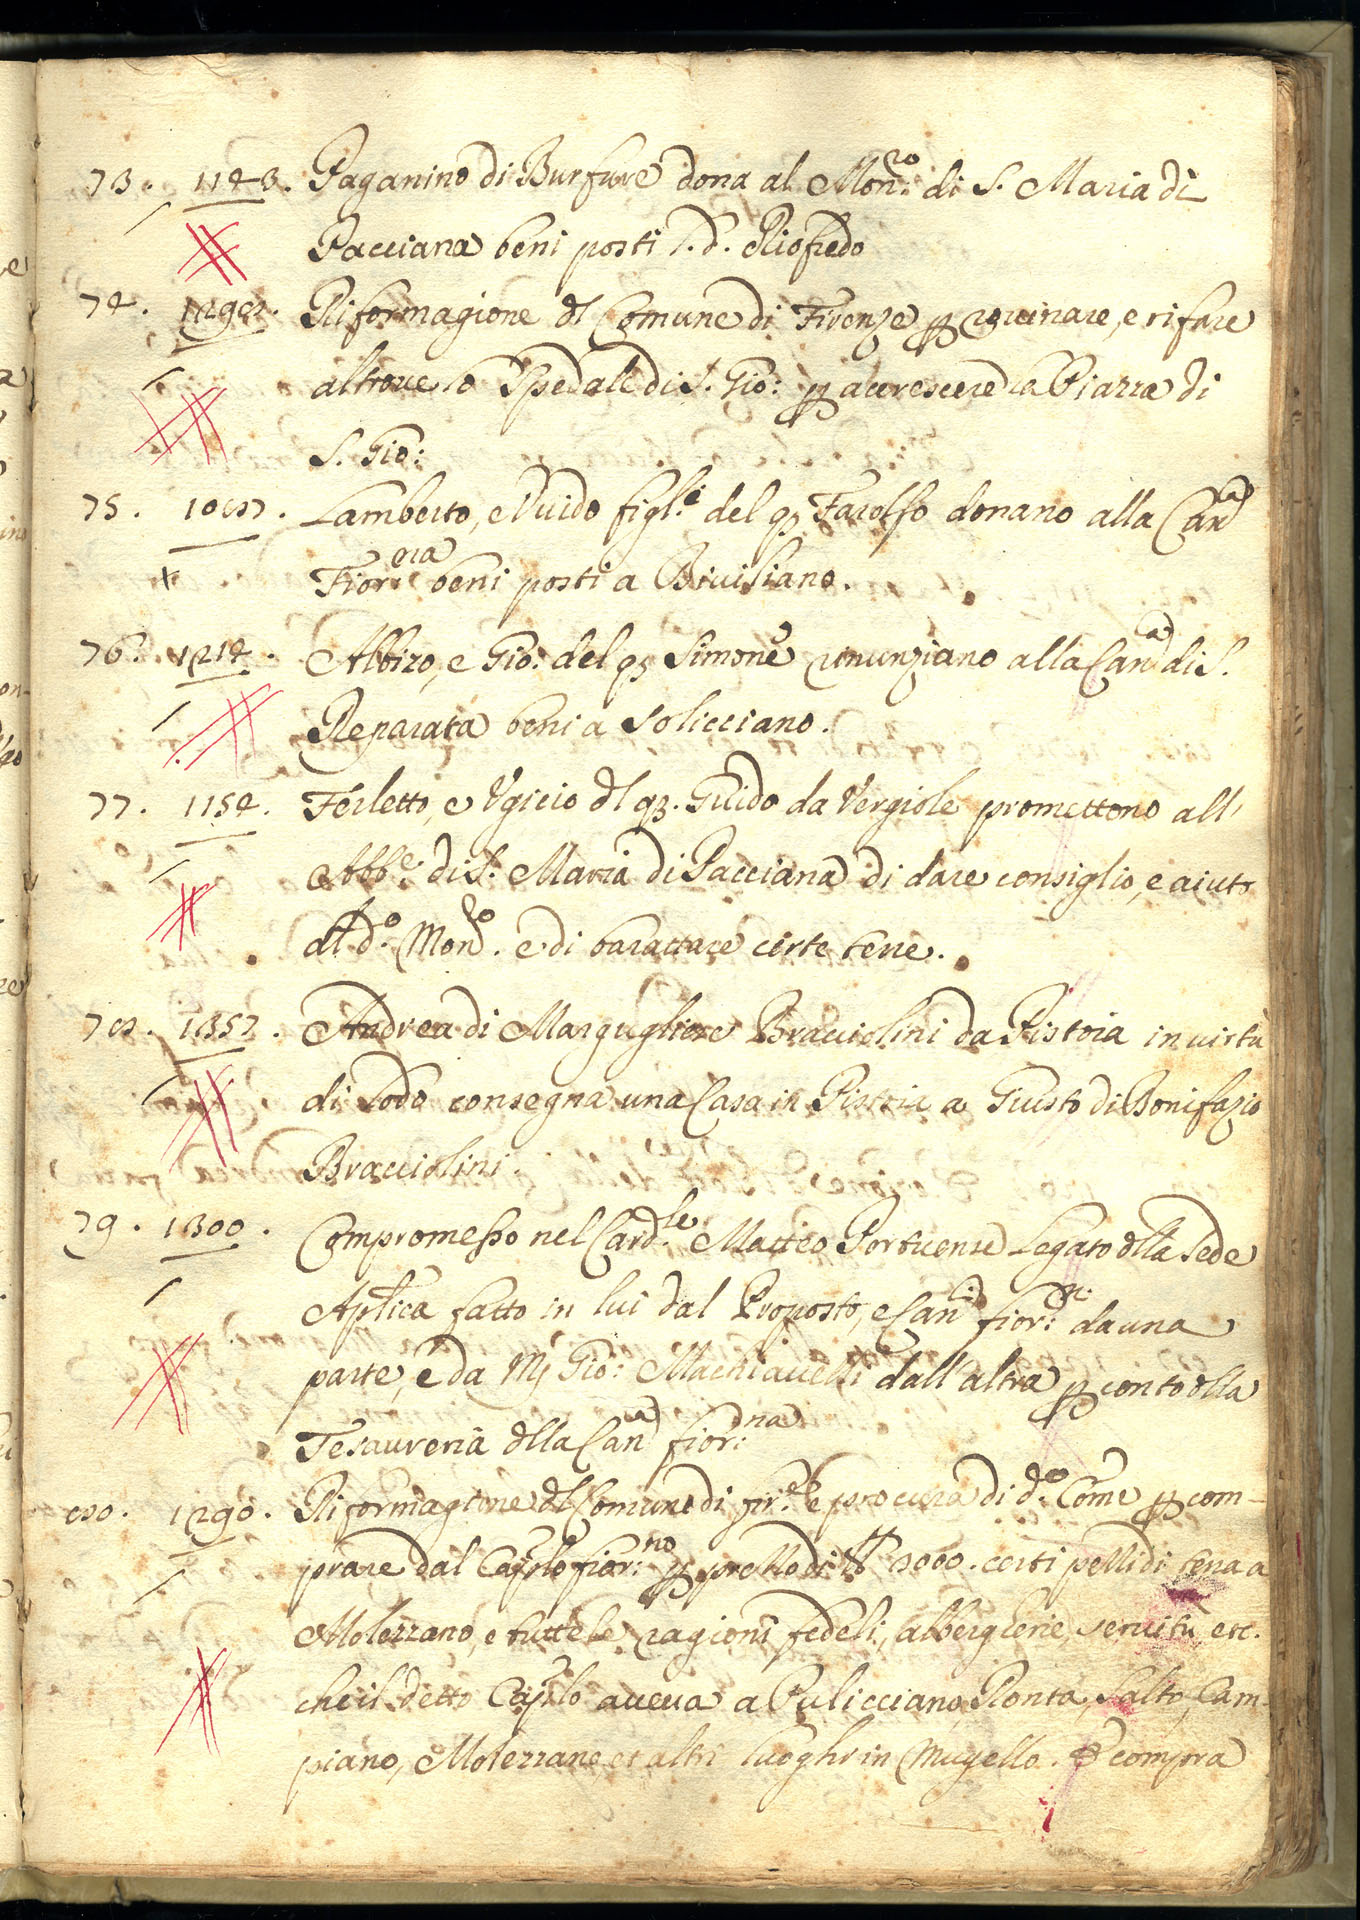 73. 1143. Paganino di Burfure dona al Mon.ro di S. Maria di
Pacciana beni posti l. d. Riofredo
74. 1298. Riformagione dl Comune di Firenze p rovinare, e rifare
altrove lo Spedale di S. Gio: p accrescere la Piazza di
S. Gio:
75. 1087. Lamberto, e Vuido figl.i del q Farolfo donano alla Can.a
Fior.na beni posti a Bivisiano.
76. 1214. Albizo, e Gio: del q Simone renunziano alla Can.a di S.
Reparata beni a Solicciano.
77. 1154. Ferletto, e Ugicio dl q. Guido da Vergiole promettono all'
Abb.e di S. Maria di Pacciana di dare consiglio, e aiuto
al d.o Mon.o e di barattare certe terre.
78. 1357. Andrea di Margugliese Bracciolini da Pistoia in virtù
di Lodo consegna una Casa in Pistoia a Giusto di Bonifazio
Bracciolini.
79. 1300. Compromesso nel Card.le Matteo Portuense Legato dlla Sede
Aplica fatto in lui dal Proposto, e Can.i fior.ni da una
parte, e da Mj Gio: Machiavelli dall'altra p conto dlla
Tesaureria dlla Can.a fior.na
80. 1290. Riformagione dl Comune di fir.e e procura di d.o Come p com-
prare dal Caplo fior.no p prezzo di 3000. certi pezzi di terra a
Molezzano, e tutte le ragioni fedeli, albergherie, servitù etc.
che il detto Caplo aveva a Pulicciano, Ronta, Salto, Cam-
piano, Molezzano, et altri luoghi in Mugello. e compra